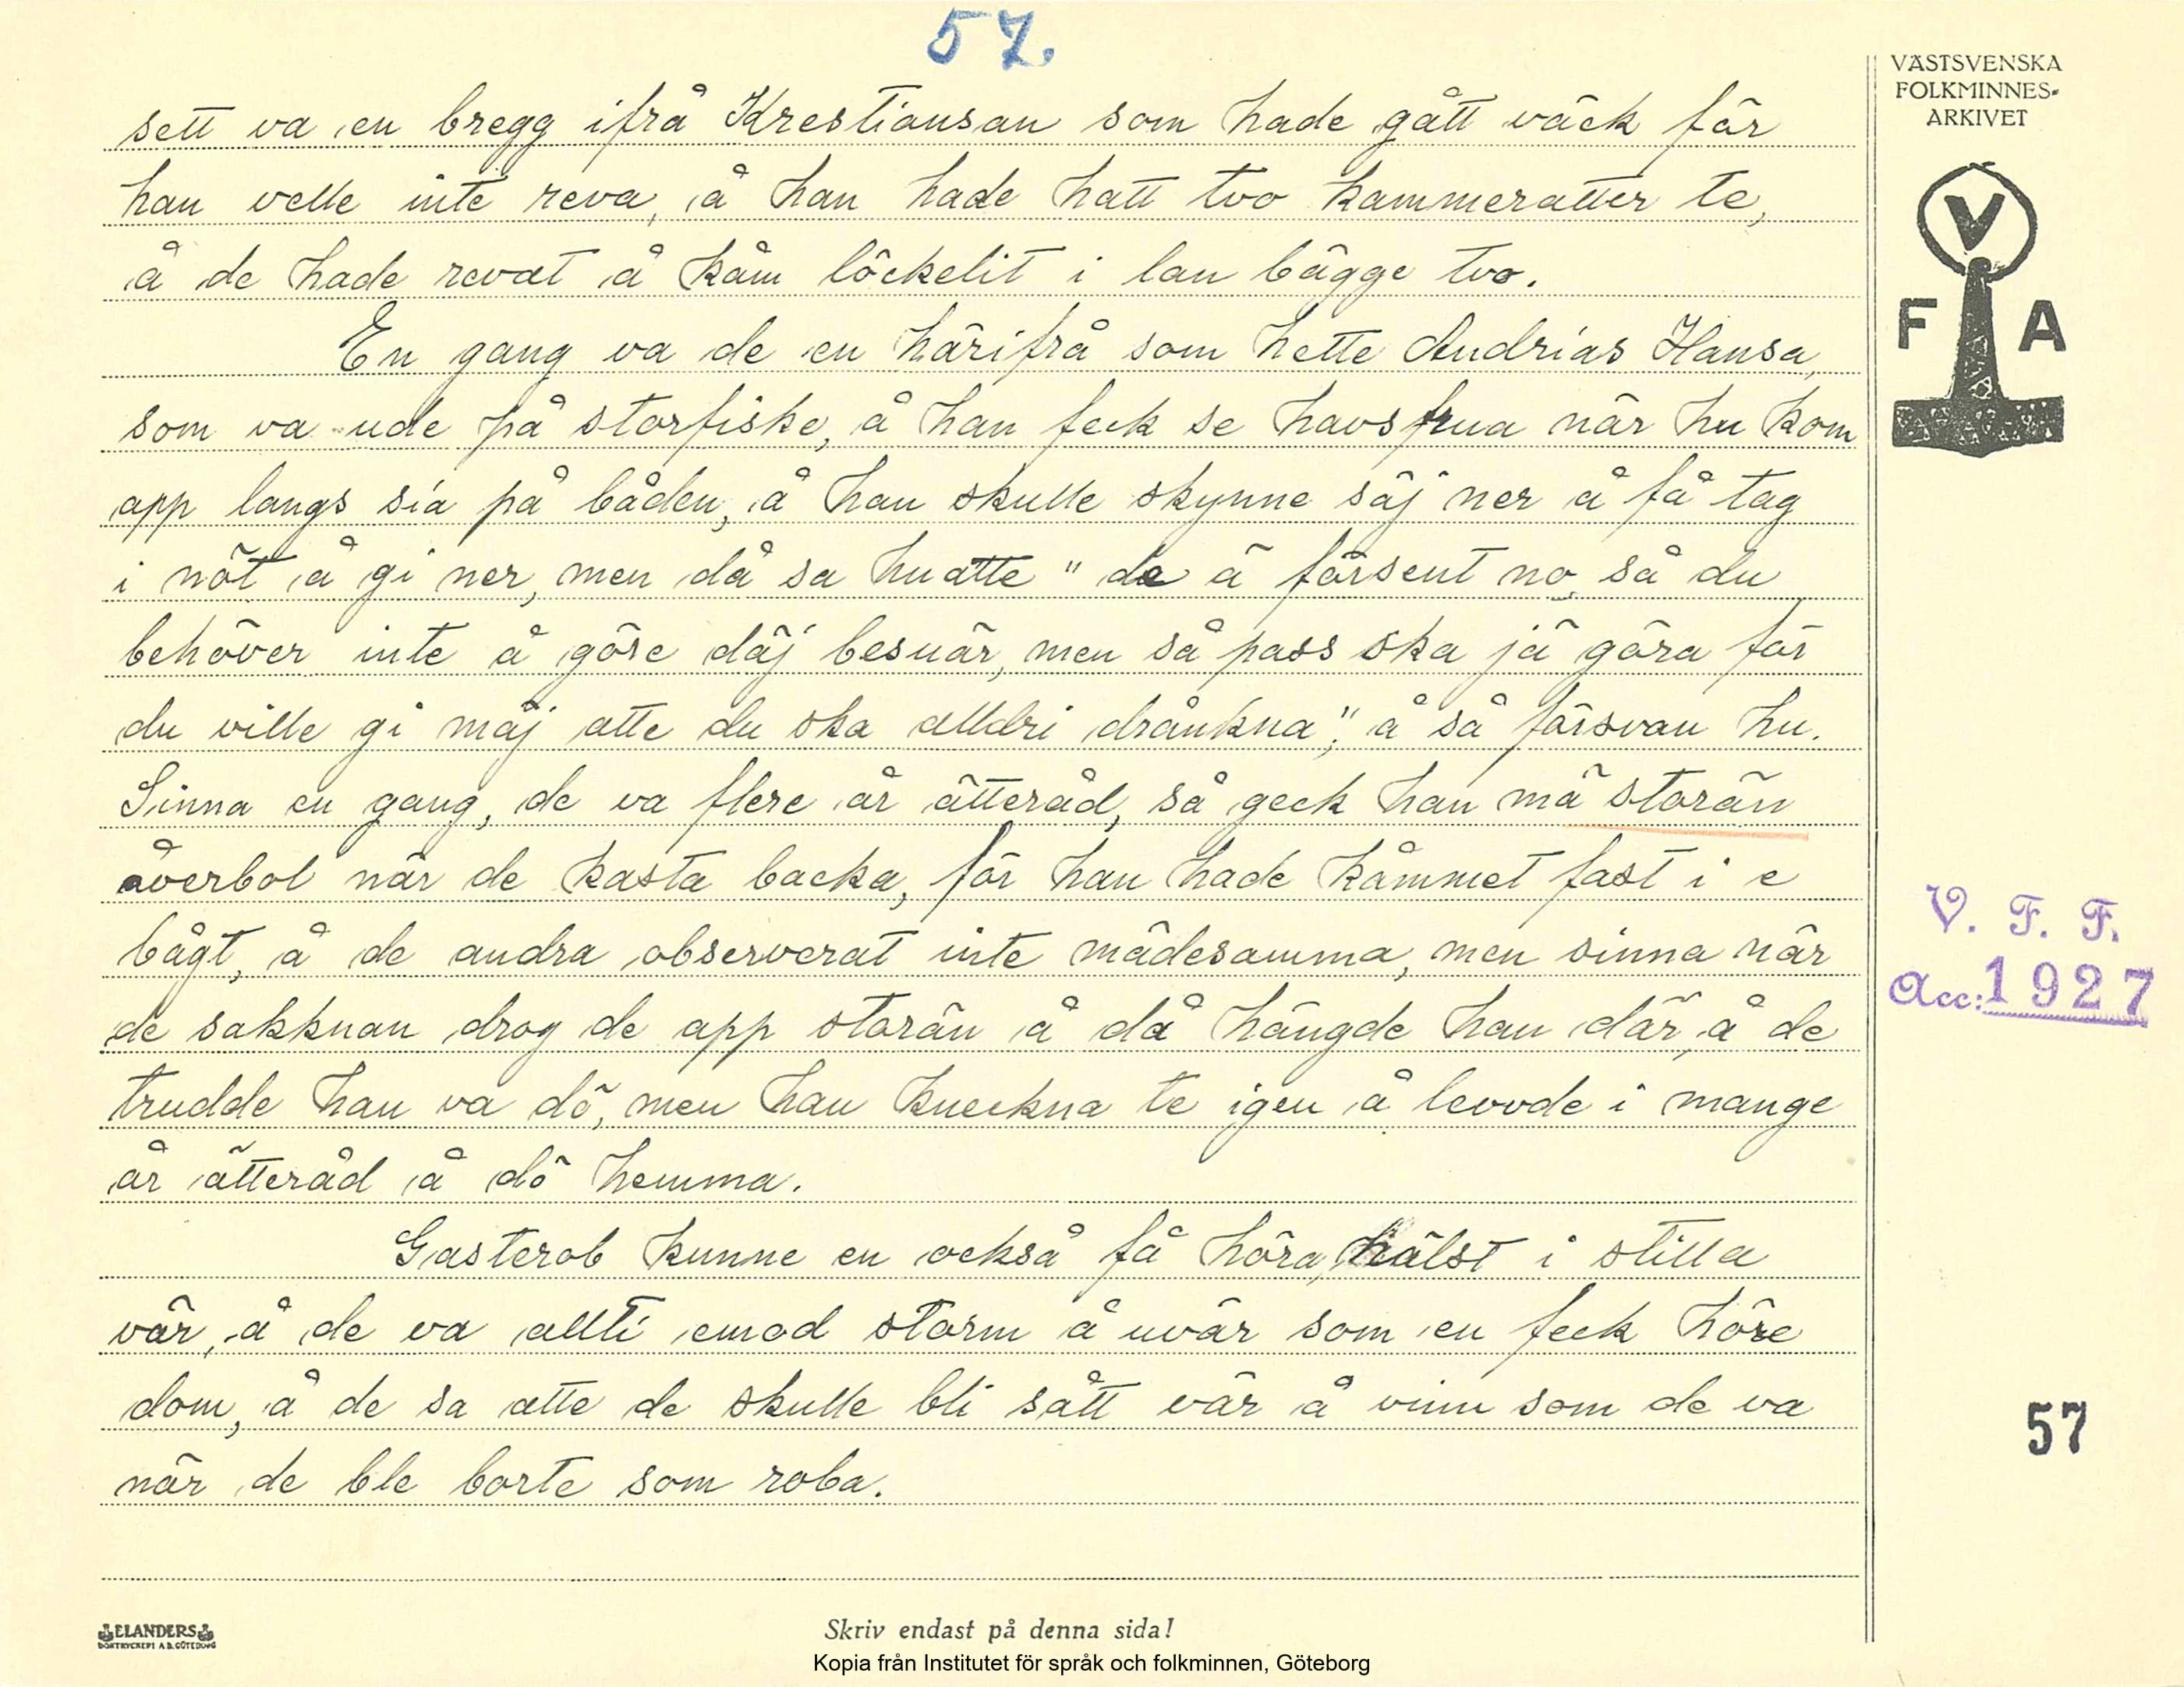 57.
VÄSTSVENSKA
FOLKMINNES-
ARKIVET
V
F A
sett va en bregg ifrå Krestiansan som hade gått väck för
han velle inte reva, å han hade hatt tvo kammeratter te,
å de hade revat å kåm löckelit i lan bägge tvo.
En gang va de en härifrå som hette Andrias Hansa,
som va ude på storfiske, å han feck se havsfrua när hu kom
app langs sia på båden, å han skulle skynne säj ner å få tag
i nöt å gi ner, men då sa hu atte " de ä försent no så du
behöver inte å göre däj besvär, men så pass ska jä göra för
du ville gi mäj atte du ska alldri drånkna", å så försvan hu.
Sinna en gang, de va flere år ätteråd, så geck han mä storän
överbol när de kasta backa, för han hade kåmmet fast i e
bågt, å de andra observerat inte mädesamma, men sinna när
de sakknan drog de app storän å då hängde han där, å de
trudde han va dö, men han kneckna te igen å levvde i mange
år ätteråd å dö hemma.
Gasterob kunne en också få höra, hälst i stilla
vär, å de va allti emod storm å uvär som en feck höre
dom, å de sa atte de skulle bli sått vär å vinn som de va
när de ble borte som roba.
V. F. F.
Acc: 1927
57
ELANDERS
BOKTRYCKERI A.B. GÖTEBORG
Skriv endast på denna sida!
Kopia från Institutet för språk och folkminnen, Göteborg